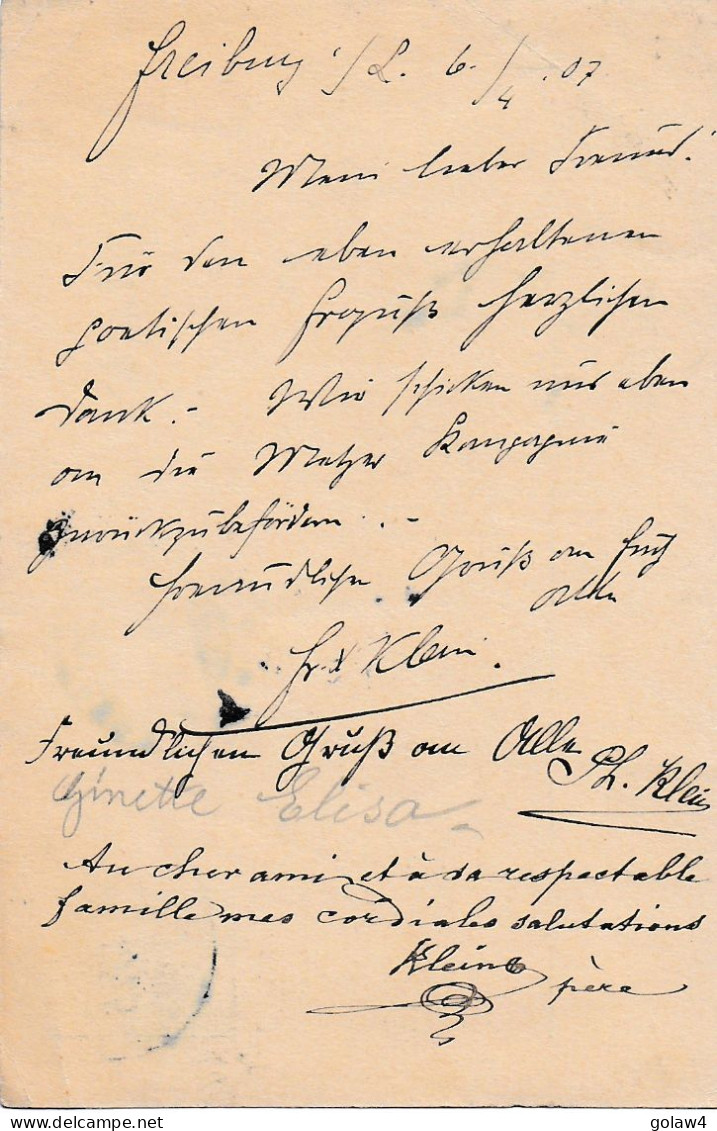 Freiburg i/L. 6./4.07
Mein lieber Freund!
Für den eben erhaltenen
poetischen Erguß herzlichen
Dank. - Wir schicken uns eben
an die Metzer Kompagnie
zurückzubefördern. -
Freundlichen Gruß an Euch
Alle
Fr. X Klein.
Freundlichen Gruß an Alle
Ph. Klein
Ginette Elisa
Au cher ami et à sa respectable
famille mes cordiales salutations
Klein père
golaw4